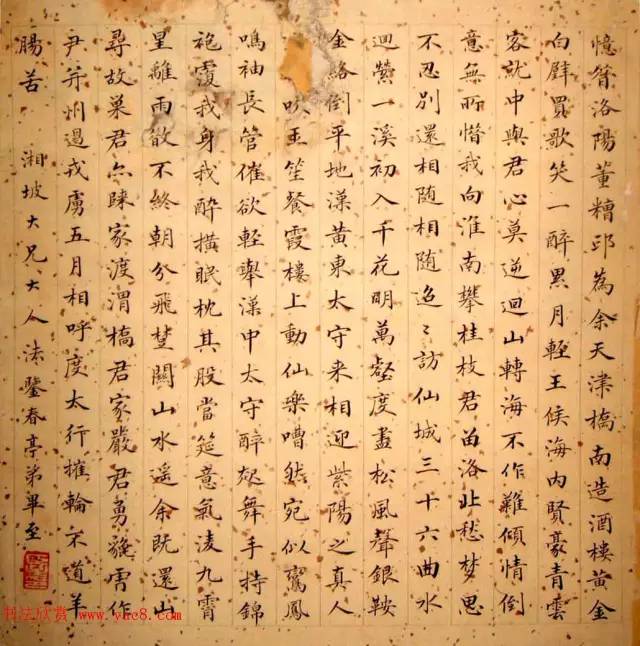 憶昔洛陽董糟邱為余天津橋南造酒樓黃金
白璧買歌笑一醉累月輕王侯海内賢豪青雲
客就中與君心莫逆迴山轉海不作難傾情倒
意無所惜我向淮南攀桂枝君留洛北愁夢思
不忍別還相隨相隨迢〻訪仙城三十六曲水
迴縈一溪初入千花明萬壑度盡松風聲銀鞍
金絡倒平地漢黃東太守来相迎紫陽之真人
吹玉笙餐霞樓上動仙樂嘈然宛似鸞鳳
鳴袖長管催欲輕舉漢中太守醉起舞手持錦
袍覆我身我醉橫眠枕其股當筵意氣凌九霄
星離雨散不終朝分飛楚關山水遙余既還山
尋故巢君亦歸家渡渭橋君家嚴君勇貔虎作
尹并州遏戎虜五月相呼度太行摧輪不道羊
腸苦 湘坡大兄大人法鑒春亭弟畢至
书法欣赏 www.yac8.com